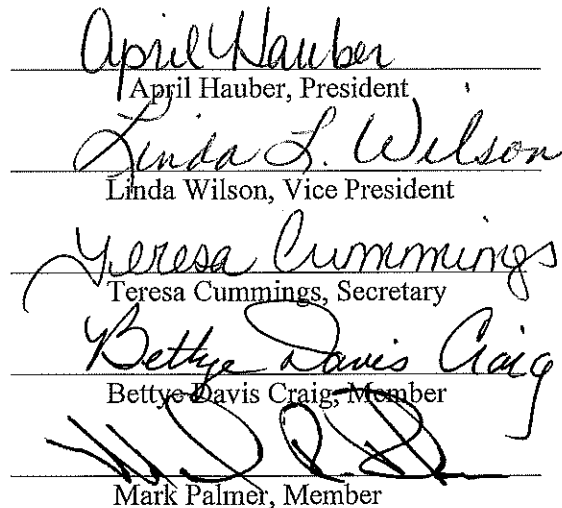 April Hauber
April Hauber, President
Linda L. Wilson
Linda Wilson, Vice President
Teresa Cummings
Teresa Cummings, Secretary
Bettye Davis Craig
Bettye Davis Craig, Member
Mark Palmer, Member